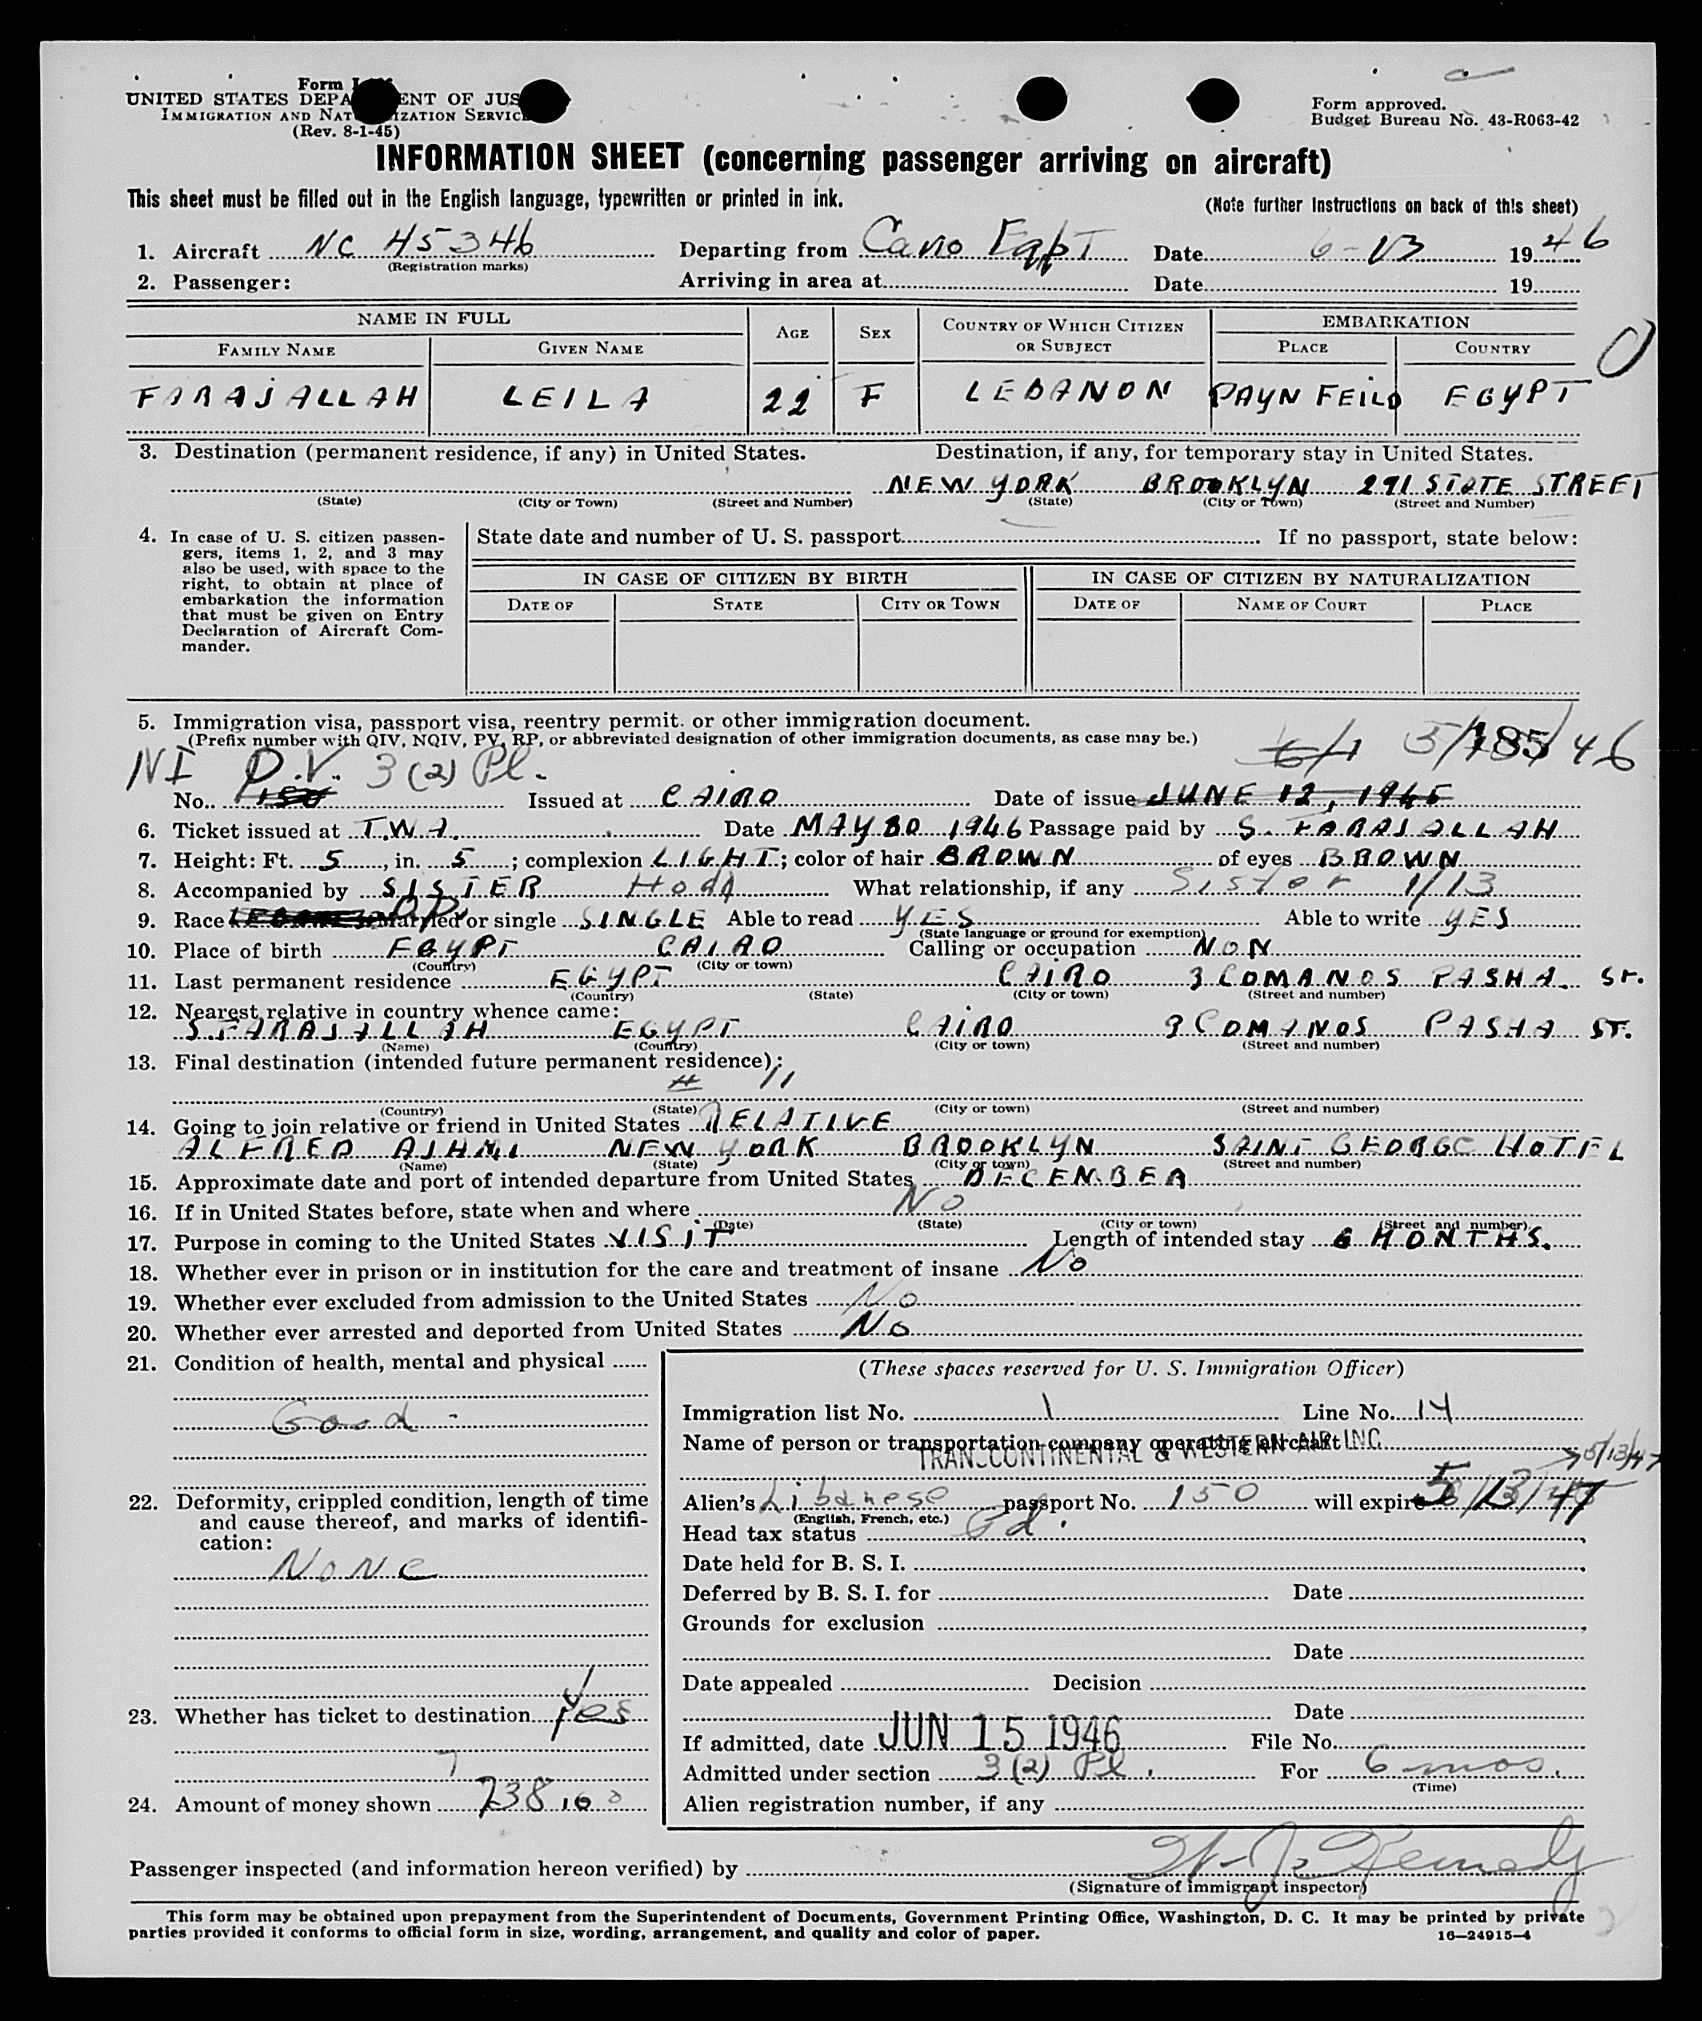 Form I
UNITED STATES DEPA ENT OF JUS
IMMIGRATION AND NAT IZATION SERVICE
(Rev. 8-1-45)
Form approved.
Budget Bureau No. 43-R063-42
INFORMATION SHEET (concerning passenger arriving on aircraft)
This sheet must be filled out in the English language, typewritten or printed in ink.
(Note further instructions on back of this sheet)
1. Aircraft NC 45346 Departing from Cairo Egypt Date 6-13 1946
(Registration marks)
2. Passenger: Arriving in area at Date 19
NAME IN FULL AGE SEX COUNTRY OF WHICH CITIZEN OR SUBJECT EMBARKATION
FAMILY NAME GIVEN NAME PLACE COUNTRY
FARAJALLAH LEILA 22 F LEBANON PAYN FEILD EGYPT
3. Destination (permanent residence, if any) in United States. Destination, if any, for temporary stay in United States.
NEW YORK BROOKLYN 291 STATE STREET
(State) (City or Town) (Street and Number) (State) (City or Town) (Street and Number)
4. In case of U. S. citizen passen-
gers, items 1, 2, and 3 may
also be used, with space to the
right, to obtain at place of
embarkation the information
that must be given on Entry
Declaration of Aircraft Com-
mander.
State date and number of U. S. passport If no passport, state below:
IN CASE OF CITIZEN BY BIRTH IN CASE OF CITIZEN BY NATURALIZATION
DATE OF STATE CITY OR TOWN DATE OF NAME OF COURT PLACE
5. Immigration visa, passport visa, reentry permit. or other immigration document.
(Prefix number with QIV, NQIV, PV, RP, or abbreviated designation of other immigration documents, as case may be.)
NI P.V. 3(2) Pl.
No. 150 Issued at CAIRO Date of issue JUNE 12, 1945
6. Ticket issued at T.W.A. Date MAY 30 1946 Passage paid by S. FARAJALLAH
7. Height: Ft. 5, in. 5; complexion LIGHT; color of hair BROWN of eyes BROWN
8. Accompanied by SISTER Hoda What relationship, if any Sister 1/13
9. Race Married or single SINGLE Able to read YES Able to write YES
(State language or ground for exemption)
10. Place of birth EGYPT CAIRO Calling or occupation NON
(Country) (City or town)
11. Last permanent residence EGYPT CAIRO 3 COMANOS PASHA. ST.
(Country) (State) (City or town) (Street and number)
12. Nearest relative in country whence came:
S. FARAJALLAH EGYPT CAIRO 3 COMANOS PASHA ST.
(Name) (Country) (City or town) (Street and number)
13. Final destination (intended future permanent residence):
# 11
(Country) (State) (City or town) (Street and number)
14. Going to join relative or friend in United States RELATIVE
ALFRED AJAMI NEW YORK BROOKLYN SAINT GEORGE HOTEL
(Name) (State) (City or town) (Street and number)
15. Approximate date and port of intended departure from United States DECEMBER
16. If in United States before, state when and where No
(Date) (State) (City or town) (Street and number)
17. Purpose in coming to the United States VISIT Length of intended stay 6 MONTHS.
18. Whether ever in prison or in institution for the care and treatment of insane No
19. Whether ever excluded from admission to the United States No
20. Whether ever arrested and deported from United States No
21. Condition of health, mental and physical
Good -
22. Deformity, crippled condition, length of time
and cause thereof, and marks of identifi-
cation:
None
23. Whether has ticket to destination Yes
24. Amount of money shown 738.00
(These spaces reserved for U. S. Immigration Officer)
Immigration list No. 1 Line No. 14
Name of person or transportation company operating aircraft
TRANSCONTINENTAL & WESTERN AIR INC
5/13/47
Alien's Libanese passport No. 150 will expire 5/13/47
(English, French, etc.)
Head tax status Pd.
Date held for B. S. I.
Deferred by B. S. I. for Date
Grounds for exclusion
Date
Date appealed Decision
Date
If admitted, date JUN 15 1946 File No.
Admitted under section 3(2) Pl. For 6 mos.
(Time)
Alien registration number, if any
Passenger inspected (and information hereon verified) by W. J. Kennedy
(Signature of immigrant inspector)
This form may be obtained upon prepayment from the Superintendent of Documents, Government Printing Office, Washington, D. C. It may be printed by private
parties provided it conforms to official form in size, wording, arrangement, and quality and color of paper.
16—24915-4